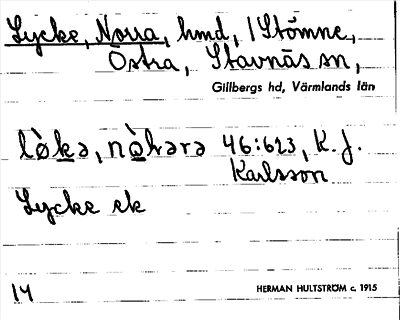 Lycke, Norra, hmd, i Stömne,
Östra, Stavnäs sn,
Gillbergs hd, Värmlands län
lø̀kə, nòkərə 46:623, K. J.
Karlsson
Lycke ek
14 HERMAN HULTSTRÖM c. 1915